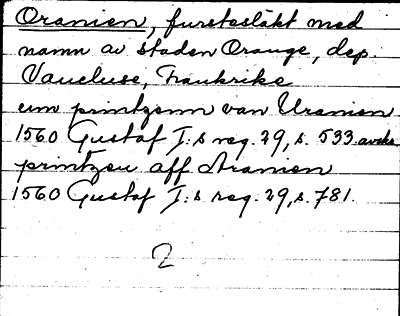 Oranien, furstesläkt med
namn av staden Orange, dep.
Vaucluse, Frankrike
um printzenn van Uranien
1560 Gustaf I:s reg. 29, s. 533 avskr.
printzen aff Aranien
1560 Gustaf I:s reg. 29, s. 781.
2